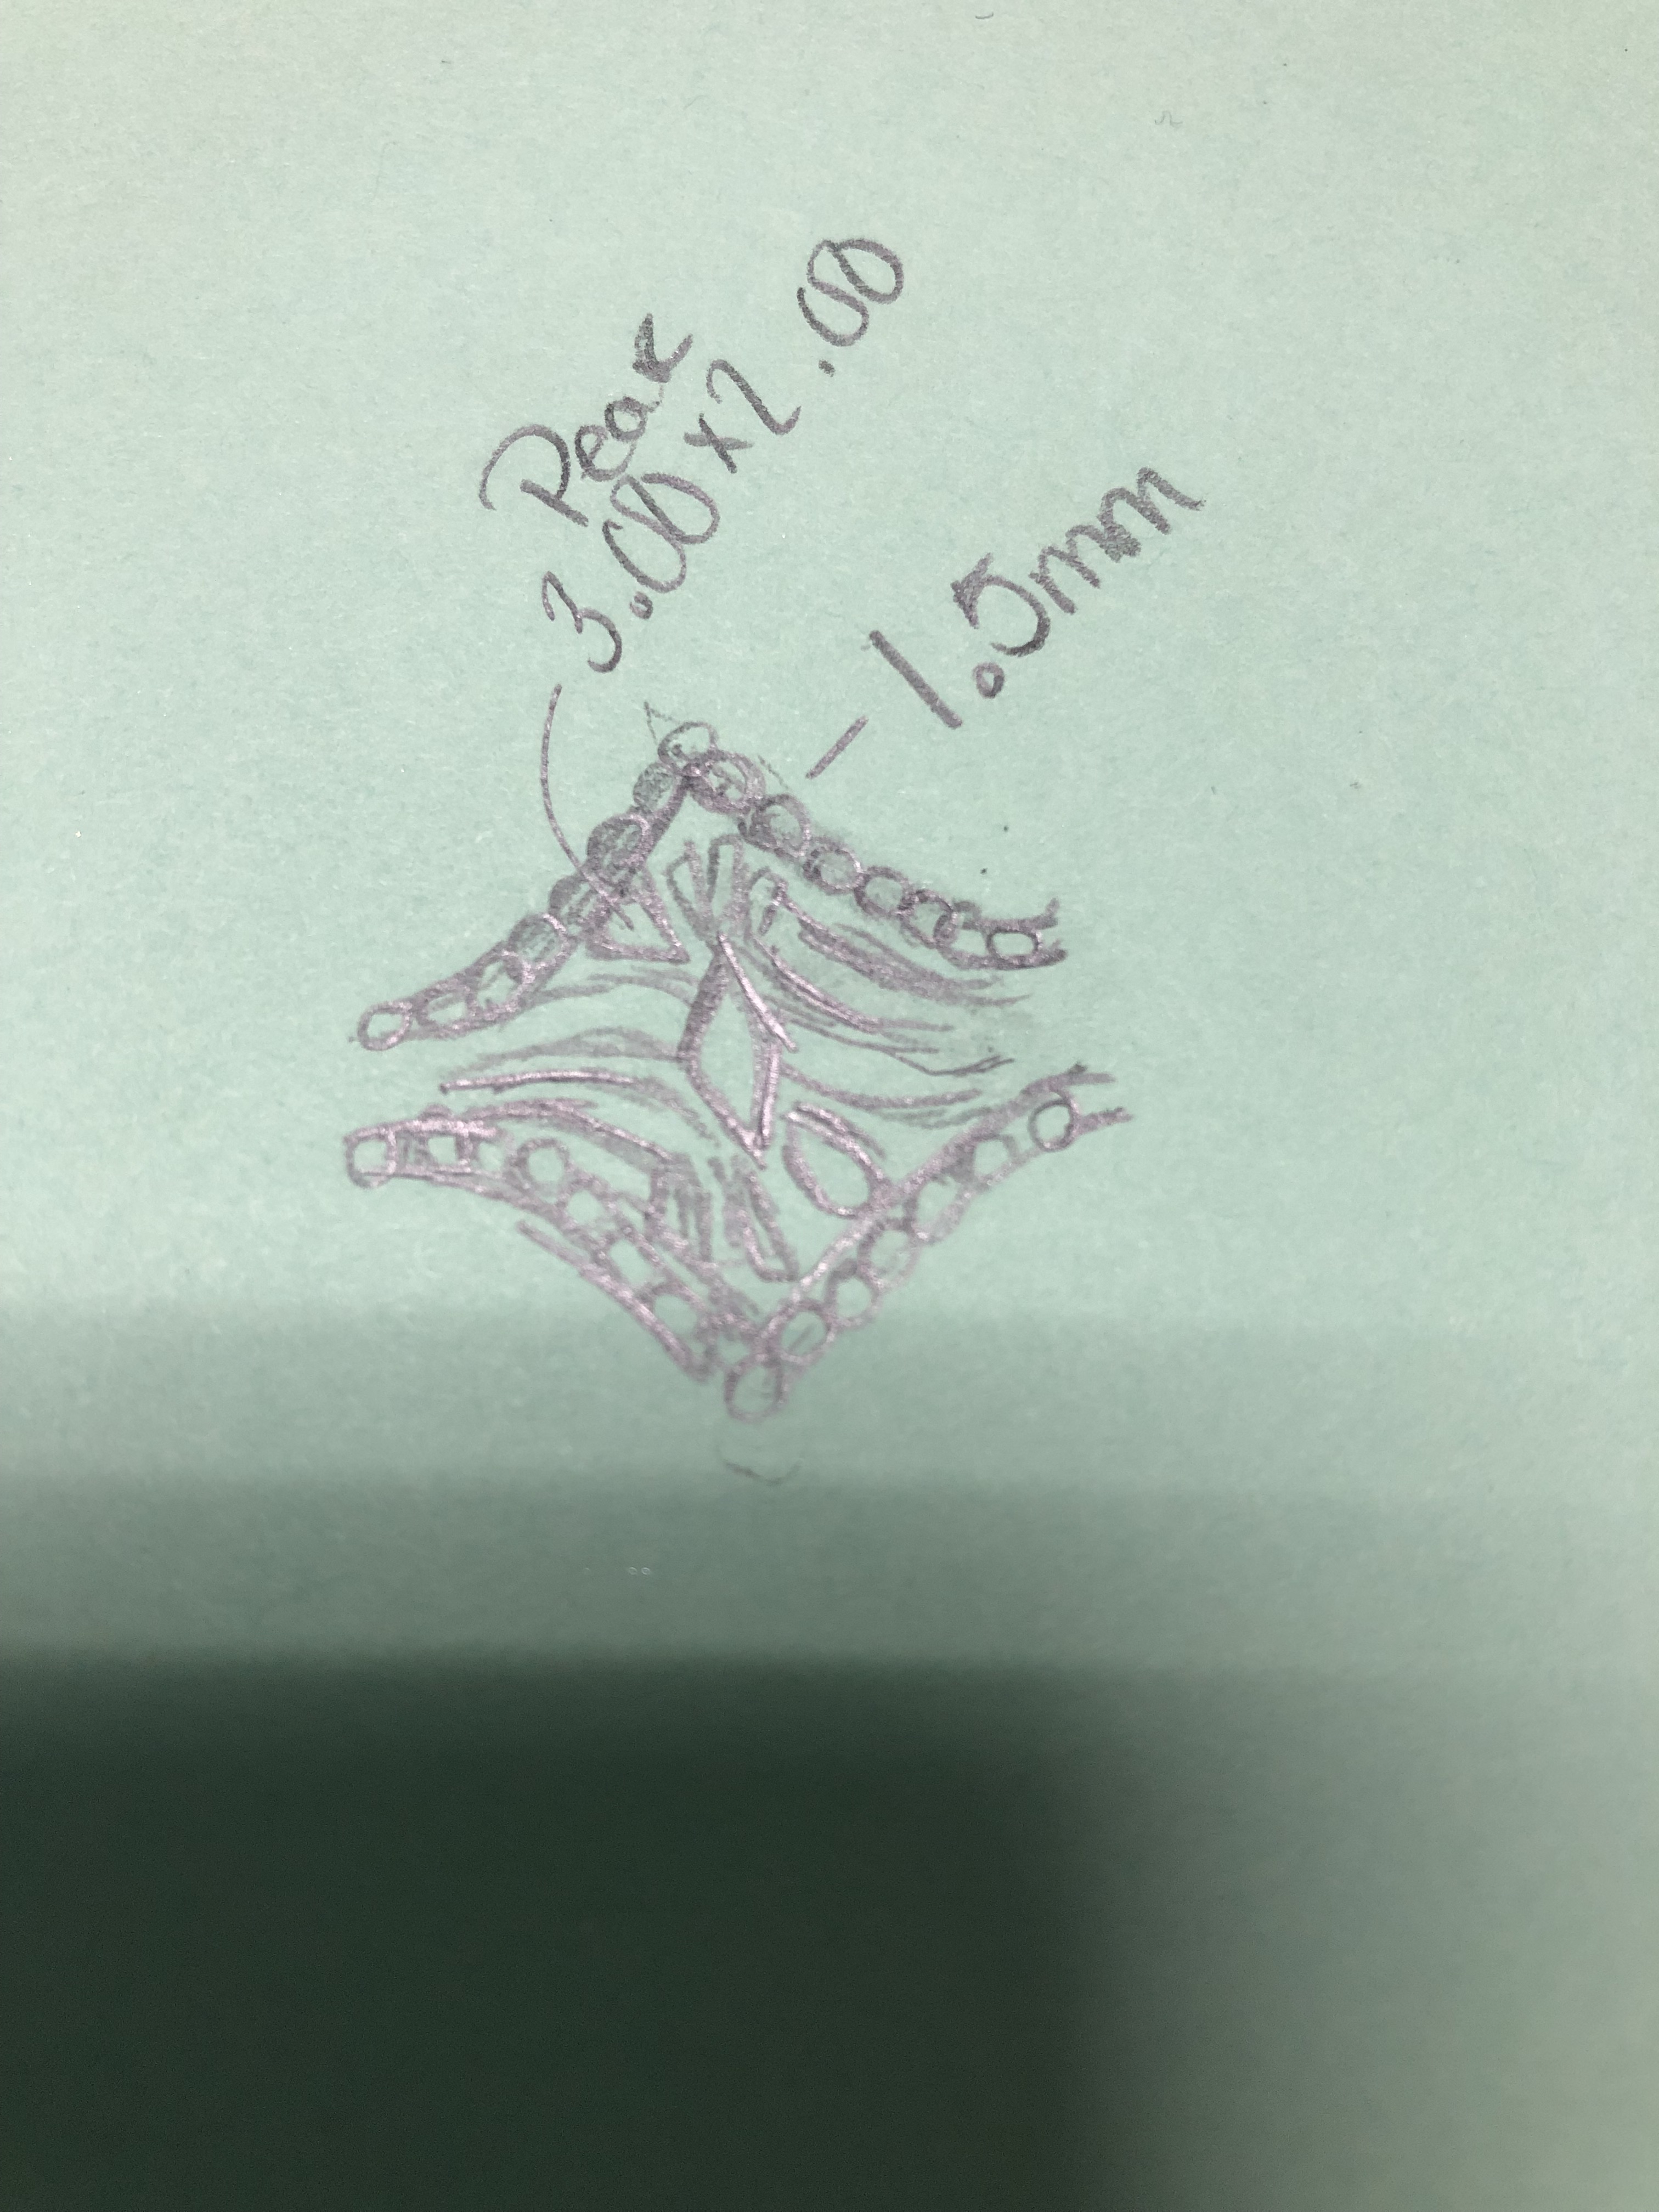 Pear
3.00 x 2.00
1.5mm